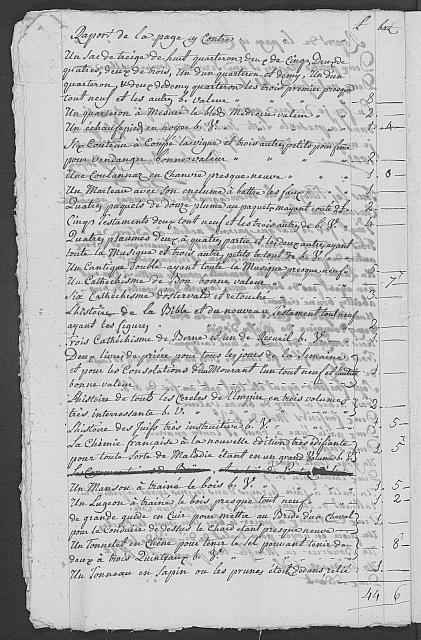 Raport de la page cy Contre £ batz
Un Sac de triége de huit quarterons, deux de Cinq, Deux de
quatres, deux de trois, Un d'un quarteron et demy, Un d'un
quarteron, & deux de demy quarteron les trois premier presque
tout neuf et les autres b. valeur " " " 8 —
Un quarteron à Mesurer le bled Mediocre valeur " 2 —
Un échauffepied en noyer b. V. " " 1 4 —
Six Couteau à Coupé la vigne et trois autres petits pour
pour vendanger bonne valeur " " " 2 —
Une en Chanvre presque neuve " " 1 8 —
Un Marteau avec son enclume à battre les faux " 1 —
Quatres paquets de douze plume au paquet
Cinq Testaments deux tout neuf et les trois autres de b. V. 4
Quatres psaumes deux à quatres partie et les deux autres ayant
toute la Musique et trois autres petits le tout de b. V.
Un Cantique double ayant toute la Musique presque neuf "
Un Cathéchisme de Bon bonne valeur 7
Six Cathéchisme d'ostervald et retouche 3
L'histoire de la Bible et du nouveau Testament tout neuf
ayant les figures " " " 2 —
Trois Cathéchisme de Berne et un de Recueil b. V. 1 —
Deux livres de prière pour tous les jours de la Semaine
et pour les Consolations d'un Mourant l'un tout neuf et l'autre
bonne valeur " " " "
L'histoire de tout les Cercles de l'Empire en trois volumes
très interessante b. V. " " " " 2 —
L'histoire des Juifs très instructive b. V. " " 2 5 —
La Chémie française à la nouvelle édition très édifiante
pour toute Sorte de Maladie étant en un grand Volume b. V. 1 5
Un Manson à traine le bois b. V. " " " 1 5 —
Un Lugeon à traine le bois presque tout neuf " 1 2 —
de grande guide en Cuir pour mettre au Bride d'un Cheval
pour la Conduire de dessus le Chard étant presque neuve 1 —
Un Tonnelet en Chêne pour tenir le Sel pouvant tenir de
deux à trois Quintaux b. V. " " " 1 8 —
Un Tonneau en Sapin ou les prunes étoit dedans relié 1 —
44 6